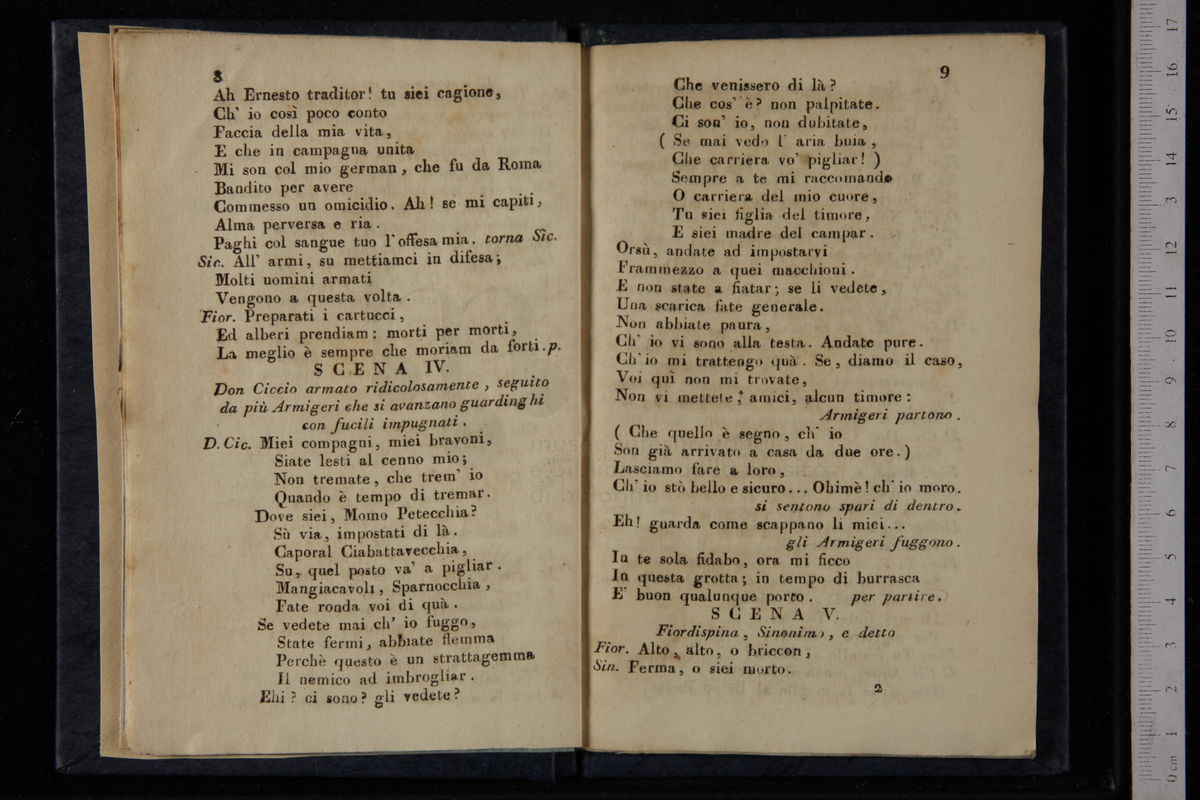 8
Ah Ernesto traditor! tu siei cagione,
Ch' io così poco conto
Faccia della mia vita,
E che in campagna unita
Mi son col mio german, che fu da Roma
Bandito per avere
Commesso un omicidio. Ah! se mi capiti,
Alma perversa e ria.
Paghi col sangue tuo l'offesa mia. torna Sic.
Sic. All' armi, su mettiamci in difesa;
Molti uomini armati
Vengono a questa volta.
Fior. Preparati i cartucci,
Ed alberi prendiam: morti per morti,
La meglio è sempre che moriam da forti. p.
SCENA IV.
Don Ciccio armato ridicolosamente, seguito
da più Armigeri che si avanzano guardinghi
con fucili impugnati.
D. Cic. Miei compagni, miei bravoni,
Siate lesti al cenno mio;
Non tremate, che trem' io
Quando è tempo di tremar.
Dove siei, Momo Petecchia?
Sù via, impostati di là.
Caporal Ciabattavecchia,
Su, quel posto va' a pigliar.
Mangiacavoli, Sparnocchia,
Fate ronda voi di quà.
Se vedete mai ch' io fuggo,
State fermi, abbiate flemma
Perchè questo è un strattagemma
Il nemico ad imbrogliar.
Ehi? ci sono? gli vedete?
9
Che venissero di là?
Che cos' è? non palpitate.
Ci son' io, non dubitate,
( Se mai vedo l' aria buia,
Che carriera vo' pigliar! )
Sempre a te mi raccomando
O carriera del mio cuore,
Tu siei figlia del timore,
E siei madre del campar.
Orsù, andate ad impostarvi
Frammezzo a quei macchioni.
E non state a fiatar; se li vedete,
Una scarica fate generale.
Non abbiate paura,
Ch' io vi sono alla testa. Andate pure.
Ch' io mi trattengo quà. Se, diamo il caso,
Voi quì non mi trovate,
Non vi mettete, amici, alcun timore:
Armigeri partono.
( Che quello è segno, ch' io
Son già arrivato a casa da due ore.)
Lasciamo fare a loro,
Ch' io stò bello e sicuro... Ohimè! ch' io moro.
si sentono spari di dentro.
Eh! guarda come scappano li miei...
gli Armigeri fuggono.
In te sola fidabo, ora mi ficco
In questa grotta; in tempo di burrasca
E' buon qualunque porto. per partire.
SCENA V.
Fiordispina, Sinonimo, e detto
Fior. Alto, alto, o briccon,
Sin. Ferma, o siei morto.
2